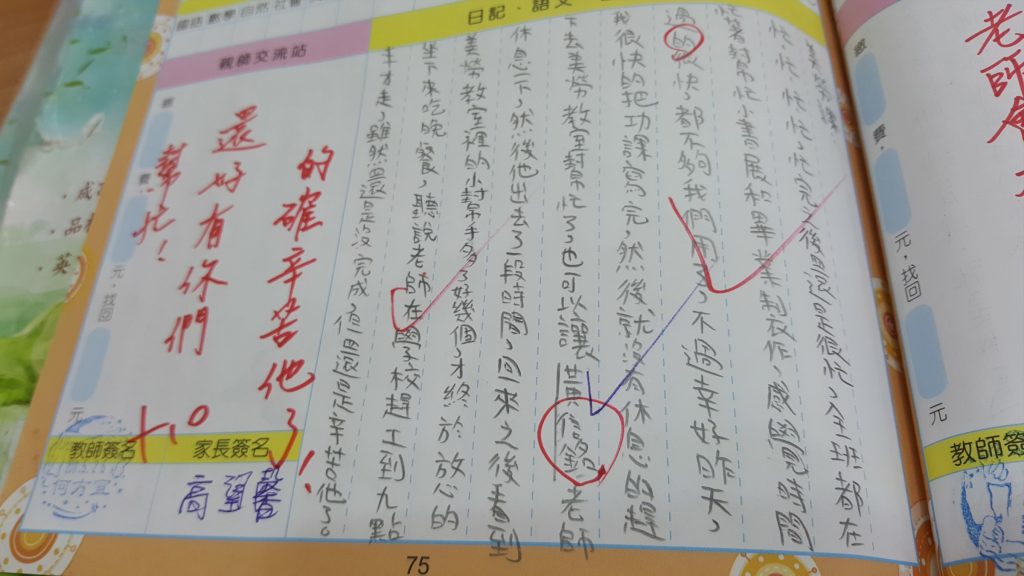 國語 數學 自然 社會
日記、語文
親師交流站
忙，忙，忙，忙完之後還是很忙，全班都在
忙著幫忙小書展和畢業製作，感覺時間
過的以快，都不夠我們用了，不過幸好昨天，
我很快的把功課寫完，然後就沒有休息的趕
下去美勞教室幫忙了，也可以讓老師
休息一下，然後他出去了一段時間，回來之後看到
美勞教室裡的小幫手多了好幾個，才終於放心的
坐下來吃晚餐，聽說老師在學校趕工到九點
才走，雖然還是沒完成 但還是辛苦他了。
的確辛苦他了！
還好有你們
幫忙！
元，找回
元
教師簽名
家長簽名
何方宜
75
老師
元，找回
元
教師簽名